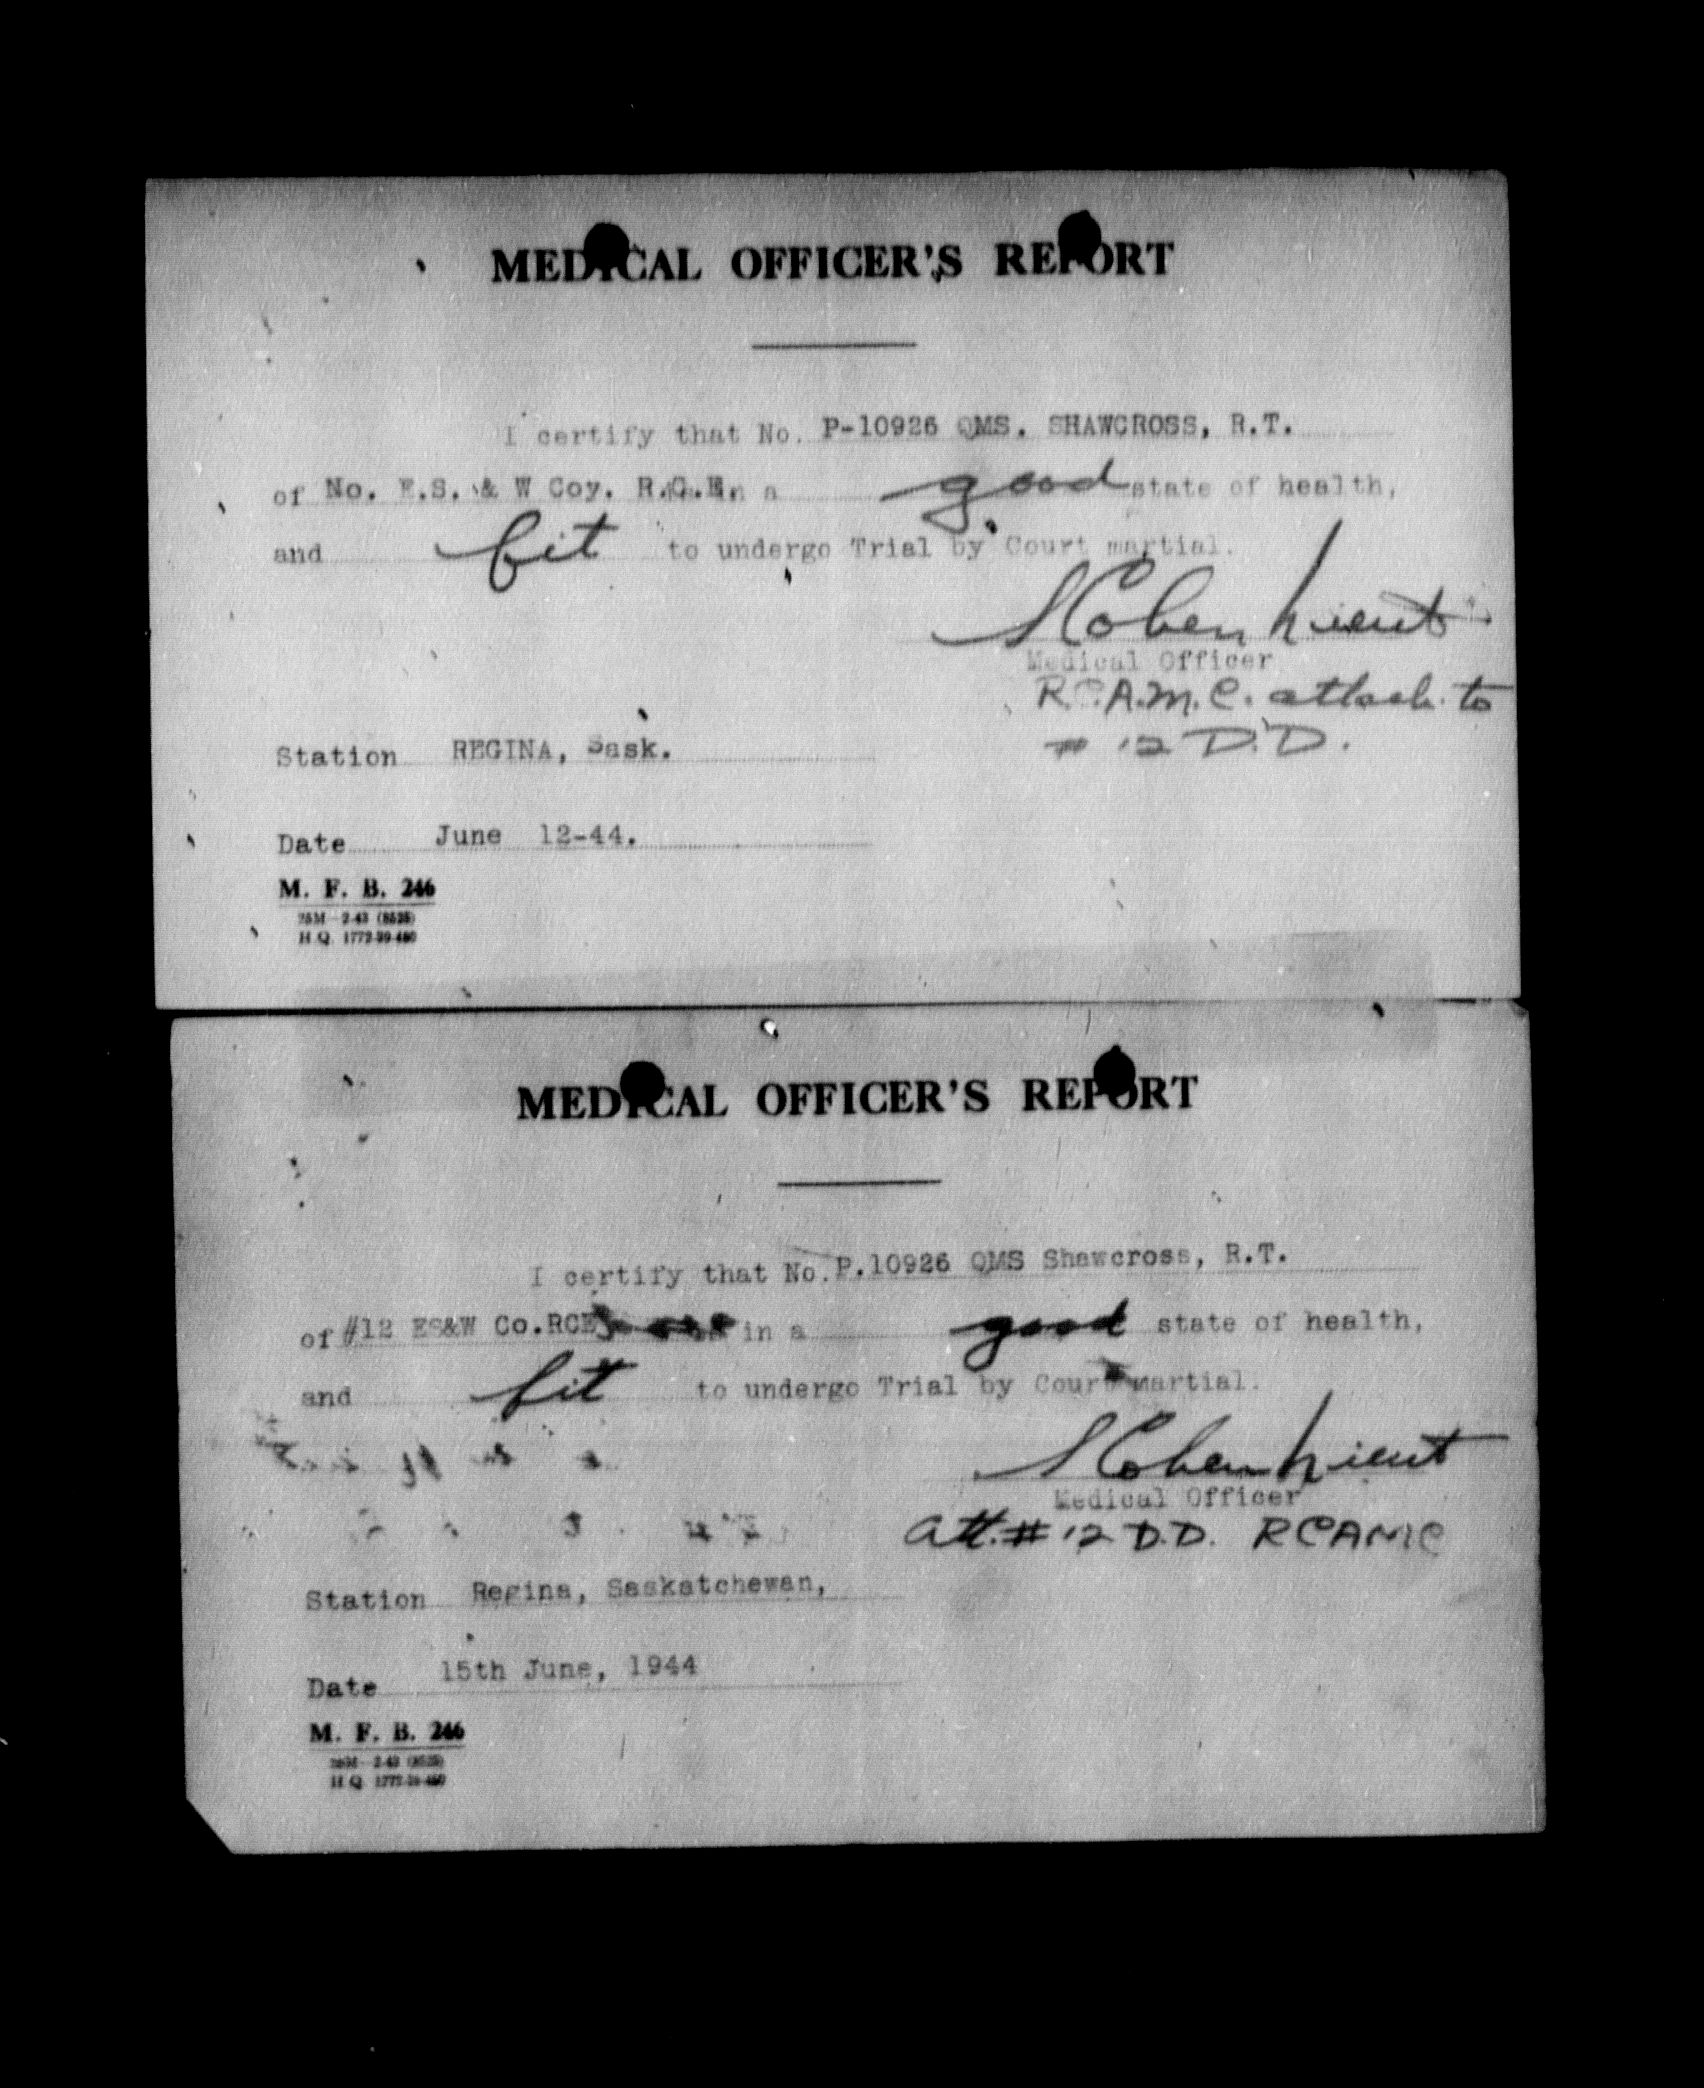 MEDICAL OFFICER'S REPORT
I certify that No. P-10926 QMS. SHAWCROSS, R.T.
of No. E.S. & W Coy. R.C.E. in a good state of health,
and fit to undergo Trial by Court martial.
S Cohen Lieut
Medical Officer
R.C.A.M.C. attach. to
# 12 D.D.
Station REGINA, Sask.
Date June 12-44.
M. F. B. 246
25M-2-43 (8525)
H.Q. 1772-39-460
MEDICAL OFFICER'S REPORT
I certify that No. P.10926 QMS Shawcross, R.T.
of #12 ES&W Co.RCE in a good state of health,
and fit to undergo Trial by Court martial.
S Cohen Lieut
Medical Officer
att. # 12 D.D. RCAMC
Station Regina, Saskatchewan,
Date 15th June, 1944
M. F. B. 246
H.Q.